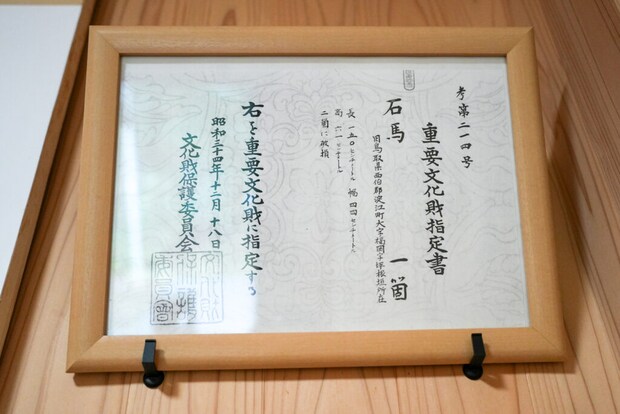 考第二一四号
重要文化財指定書
石馬 一箇
旧鳥取県西伯郡淀江町大字福岡字塚根垣所在
長 一五〇センチメートル 幅 四四センチメートル
高 六一センチメートル
二箇に破損
右を重要文化財に指定する
昭和三十四年十二月十八日
文化財保護委員会
文化財
保護
委員会